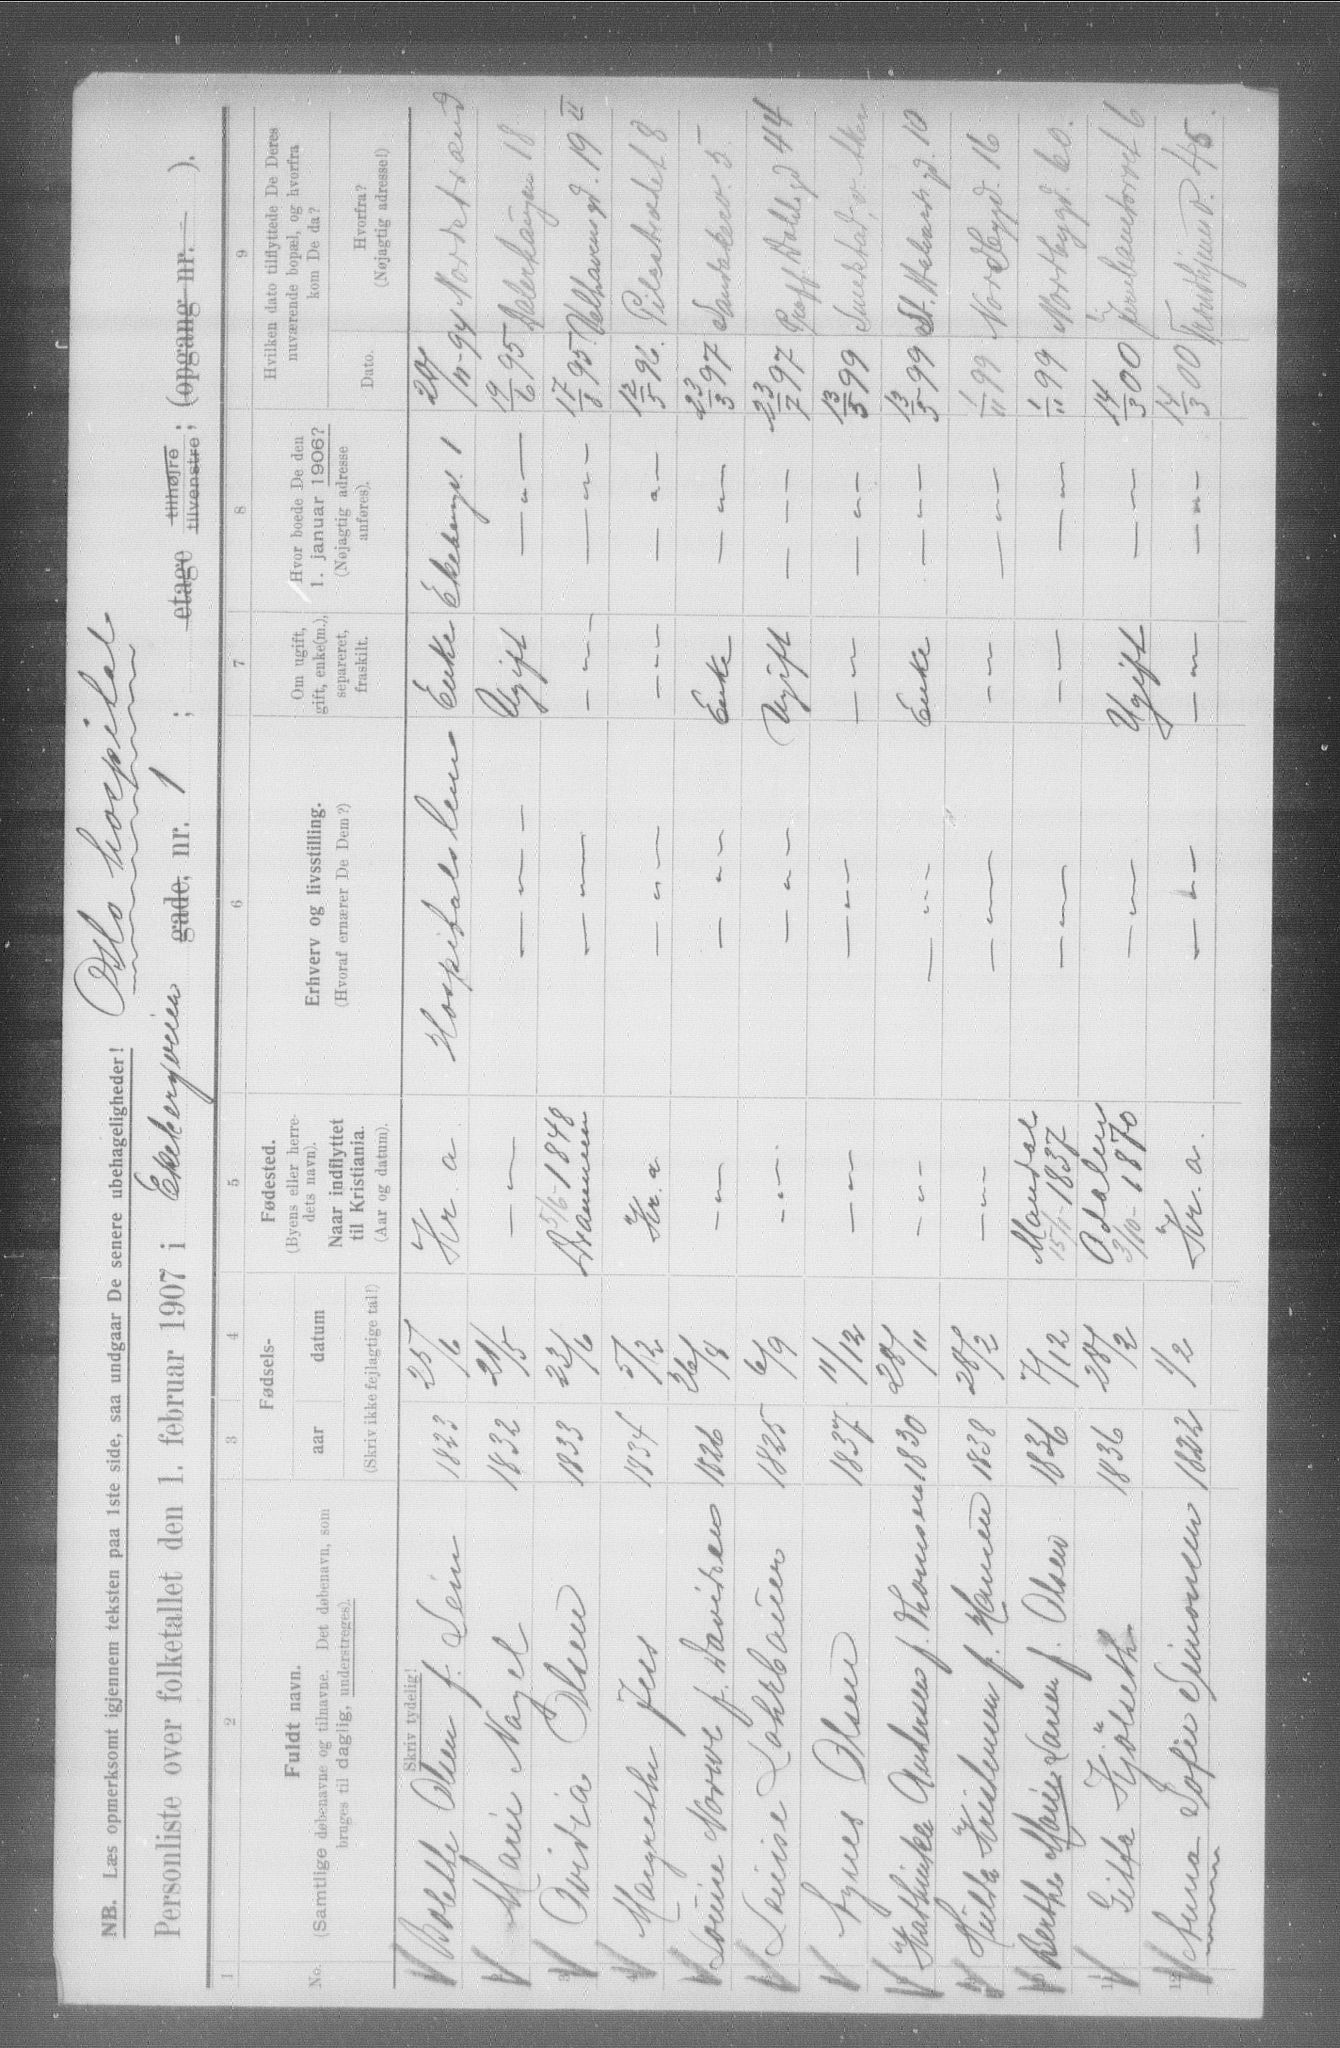 NB. Læs opmerksomt igjennem teksten paa 1ste side, saa undgaar De senere ubehageligheder!
Oslo hospital
Personliste over folketallet den 1. februar 1907 i Ekebergveien gade, nr. 1 ; etage tilhøjre tilvenstre ; (opgang nr. — ).
1 2 3 4 5 6 7 8 9
No. Fuldt navn. (Samtlige døbenavne og tilnavne. Det døbenavn, som bruges til daglig, understreges).
Fødsels- aar datum (Skriv ikke fejlagtige tal!)
Fødested. (Byens eller herredets navn). Naar indflyttet til Kristiania. (Aar og datum).
Erhverv og livsstilling. (Hvoraf ernærer De Dem?)
Om ugift, gift, enke(m.), separeret, fraskilt.
Hvor boede De den 1. januar 1906? (Nøjagtig adresse anføres).
Hvilken dato tilflyttede De Deres nuværende bopæl, og hvorfra kom De da? Dato. Hvorfra? (Nøjagtig adresse!)
Skriv tydelig!
Bolette Olsen f. Lein 1823 25/6 Kr.a. Hospitalslem Enke Ekebergv. 1 20/11-94 Nordstrand
Marie Nagel 1832 21/5 — " — — " — Ugift — " — 19/6 95 Vålerhaugen 18
Ovidia Olsen 1833 23/6 5/6-1848 Drammen — " — — " — — " — 17/8 95 Velhavensgd. 19 II
Margrethe Jees 1834 5/12 Kr.a — " — — " — — " — 12/5 96. Pilestrædet 8
Lovise Norve f. Davidsen 1826 26/8 — " — — " — Enke — " — 23/3 97 Sandakerv. 5
Louise Lohrbauer 1825 6/9 — " — — " — Ugift — " — 23/7 97 Proff. Dahlsgd 44
Agnes Olsen 1837 11/12 — " — — " — — " — — " — 13/5 99 Smedstad, v. Aker
Kathinka Andersen f. Thomsen 1830 28/11 — " — — " — Enke — " — 13/5 99 St. Halvards gd. 10
Hulda Kristensen f. Hansen 1838 28/2 — " — — " — — " — — " — 1/11 99 Nordbygd. 16
Berthe Marie Larsen f. Olsen 1836 7/12 Mandal 15/11-1837 — " — — " — — " — 1/11 99 Nordbygd. 60.
11 Gitta Kjølseth 1836 28/2 Odalen 3/10-1870 — " — Ugift — " — 14/3 00 Jernbanetorvet 6
12 Anna Sofie Simonsen 1822 1/2 Kr.a. — " — — " — — " — 14/3 00 Trondhjemsv. 45.